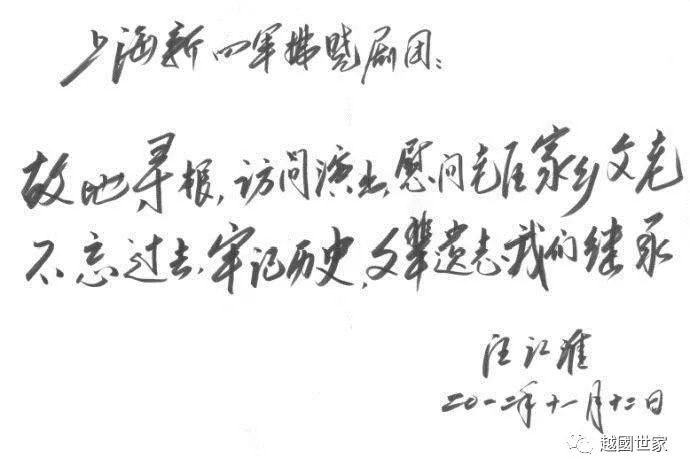 上海新四军拂晓剧团:
故地寻根,访问演出,慰问老区家乡父老
不忘过去,牢记历史,父辈遗志我们继承
汪江淮
二〇一二年十一月十二日
越國世家